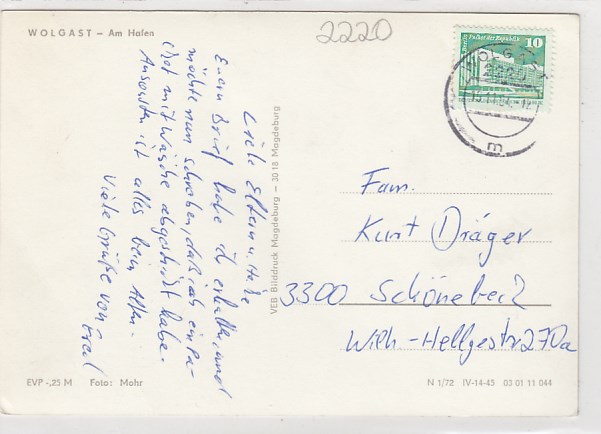 WOLGAST – Am Hafen
2220
Berlin, Palast der Republik 10
WOLGAST
2220
m
Liebe Eltern. Habe
Euern Brief habe ich erhalten, und
möchte nun schreiben, daß ich ein Pa-
ket mit Wäsche abgeschickt habe.
Ansonsten ist alles beim Alten.
Viele Grüße von
VEB Bilddruck Magdeburg — 3018 Magdeburg
Fam.
Kurt Dräger
3300 Schönebeck
Wilh-Hellgestr 270a
EVP -,25 M Foto: Mohr
N 1/72 IV-14-45 03 01 11 044